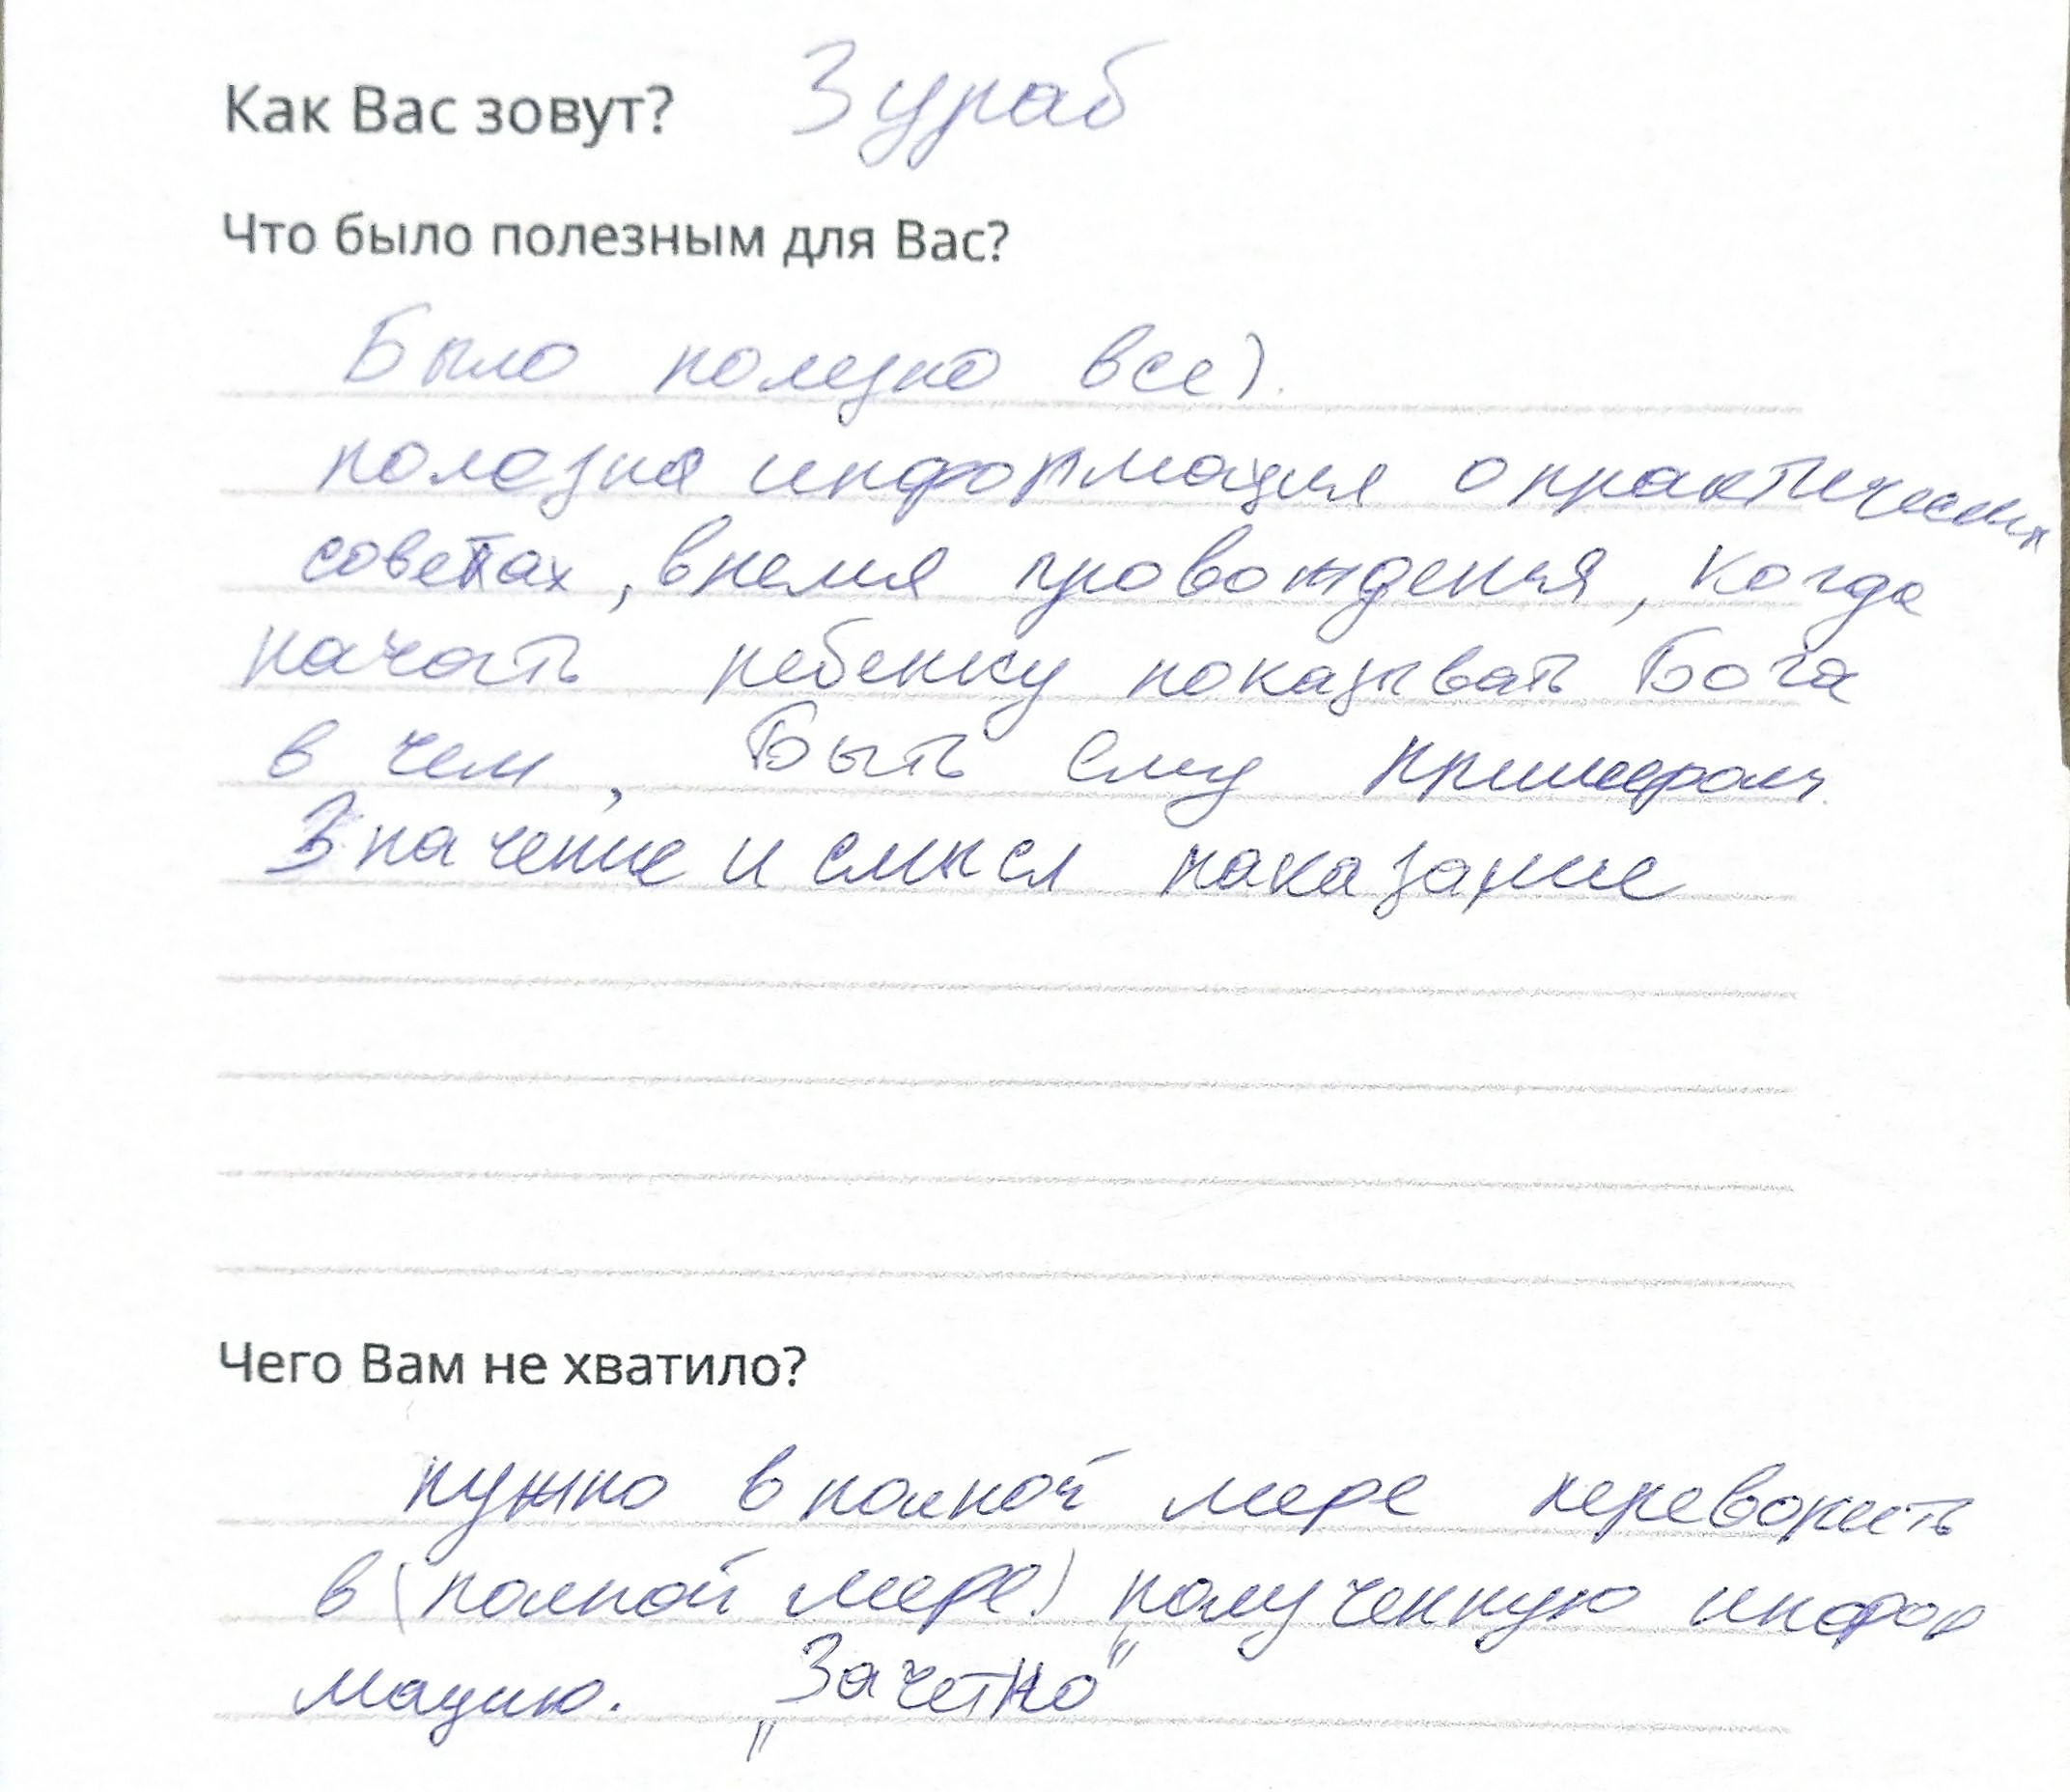 Как Вас зовут? Зураб
Что было полезным для Вас?
Было полезно все).
полезна информация о практических
советах, время провождения, когда
начать ребенку показывать Бога
в чем, Быть Ему примером.
Значение и смысл наказание
Чего Вам не хватило?
нужно в полной мере
в (полной мере) полученную инфор
мацию. „Зачетно"